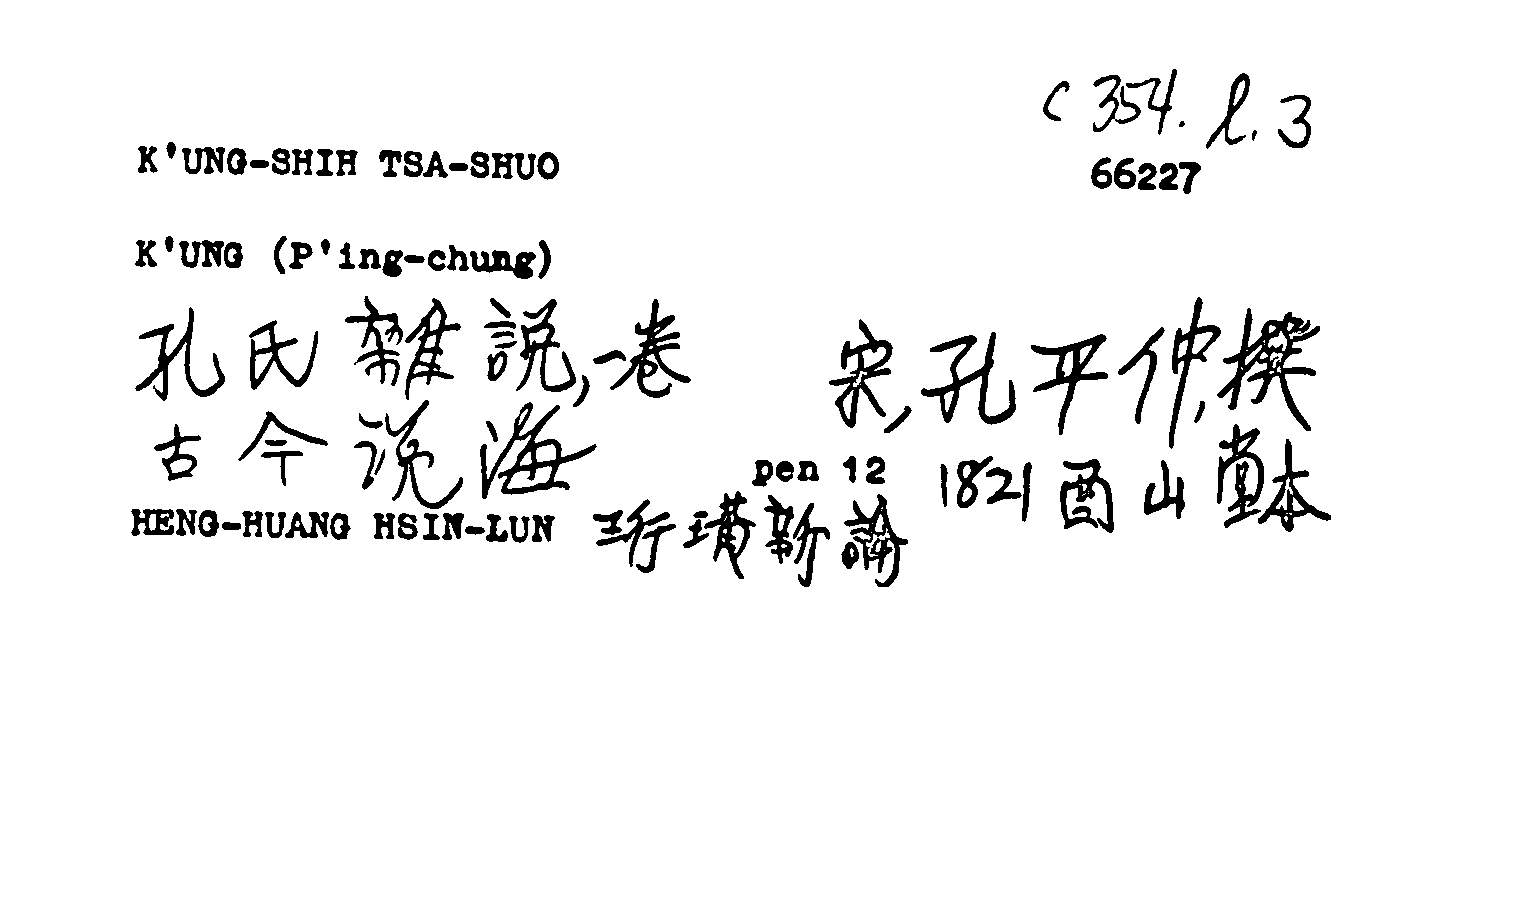 C 354. l. 3
66227
K'UNG-SHIH TSA-SHUO
K'UNG (P'ing-chung)
孔氏雜說,一卷 宋,孔平仲,撰
古今说海 pen 12 1821 酉山堂本
HENG-HUANG HSIN-LUN 珩璜新論